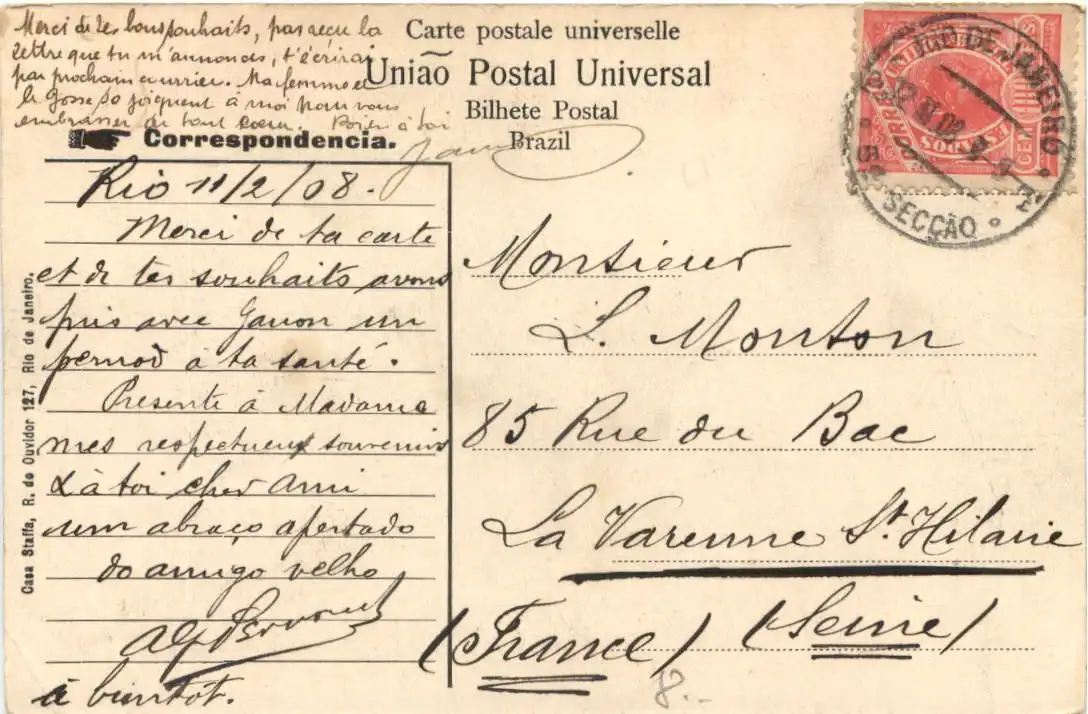 Merci de tes bons souhaits, pas reçu la
lettre que tu m'annonces, t'écrirai
par prochain courrier. Ma femme et
le gosse se joignent à moi pour vous
embrasser de tout coeur. Bien à toi
Carte postale universelle
União Postal Universal
Bilhete Postal
Brazil
Correspondencia.
Rio 11/2/08.
Merci de ta carte
et de tes souhaits avons
pris avec Ganon un
pernod à ta santé.
Presente à Madame
mes respectueux souvenirs
& à toi cher ami
um abraço apertado
do amigo velho
à bientôt.
Casa Staffa, R. do Ouvidor 127, Rio de Janeiro.
Monsieur
L. Monton
85 Rue du Bac
La Varenne St Hilaire
(Seine)
(France)
RIO DE JANEIRO
SECÇÃO